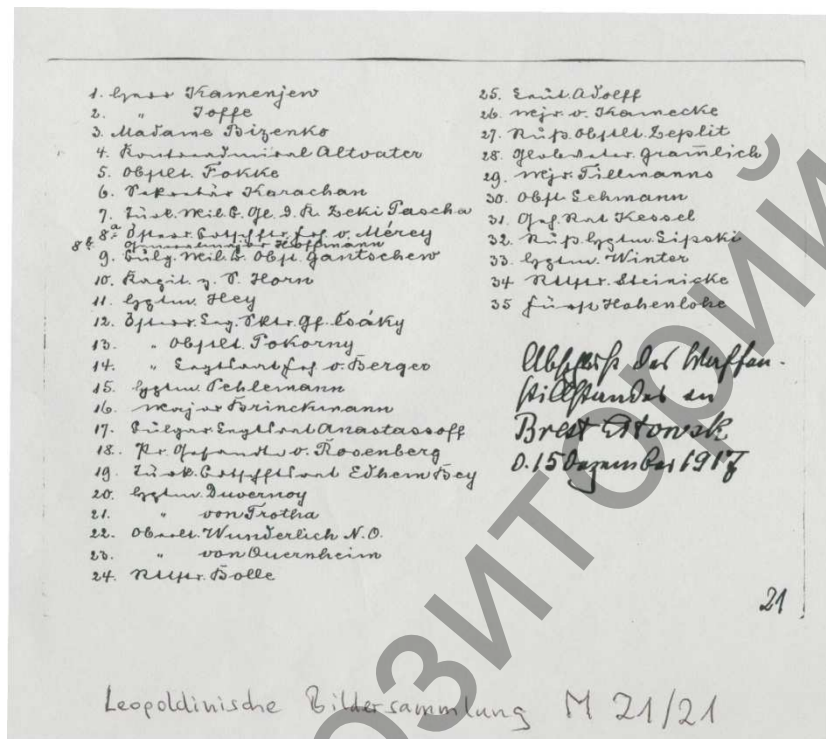 1. Herr Kamenjew
2. " Joffe
3. Madame Bizenko
4. Kontreadmiral Altvater
5. Obstlt. Fokke
6. Sekretär Karachan
7. Türk. Mil. B. Gl. d. K. Zeki Pascha
8a. Österr. Botschftr. Frh. v. Mérey
8b. Generalmajor Hoffmann
9. Bulg. Mil. B. Obst. Gantschew
10. Kapit. z. S. Horn
11. Hptm. Hey
12. Österr. Leg. Sktr. Gf. Csáky
13. " Obstlt. Pokorny
14. " Legtsrat Frh. v. Berger
15. Hptm. Pehlemann
16. Major Brinckmann
17. Bulgar Legtsrat Anastassoff
18. Pr. Gesandte v. Rosenberg
19. Türk. Botschftsrat Edhem Bey
20. Hptm. Duvernoy
21. " von Trotha
22. Oberlt. Wunderlich N.O.
23. " von Quernheim
24. Rittstr. Bolle
25. Leut. Adolff
26. Mjr. v. Kamecke
27. Ruß. Obstlt. Zeplit
28. Gramlich
29. Mjr. Tillmanns
30. Obst. Lehmann
31. Geh. Rat Kessel
32. Ruß. Hptm. Lipski
33. Hptm. Winter
34 Rittstr. Steinicke
35 Fürst Hohenlohe
Abschluß des Waffen-
stillstandes in
Brest Litowsk
d. 15 Dezember 1917
21
Leopoldinische Bildersammlung M 21/21